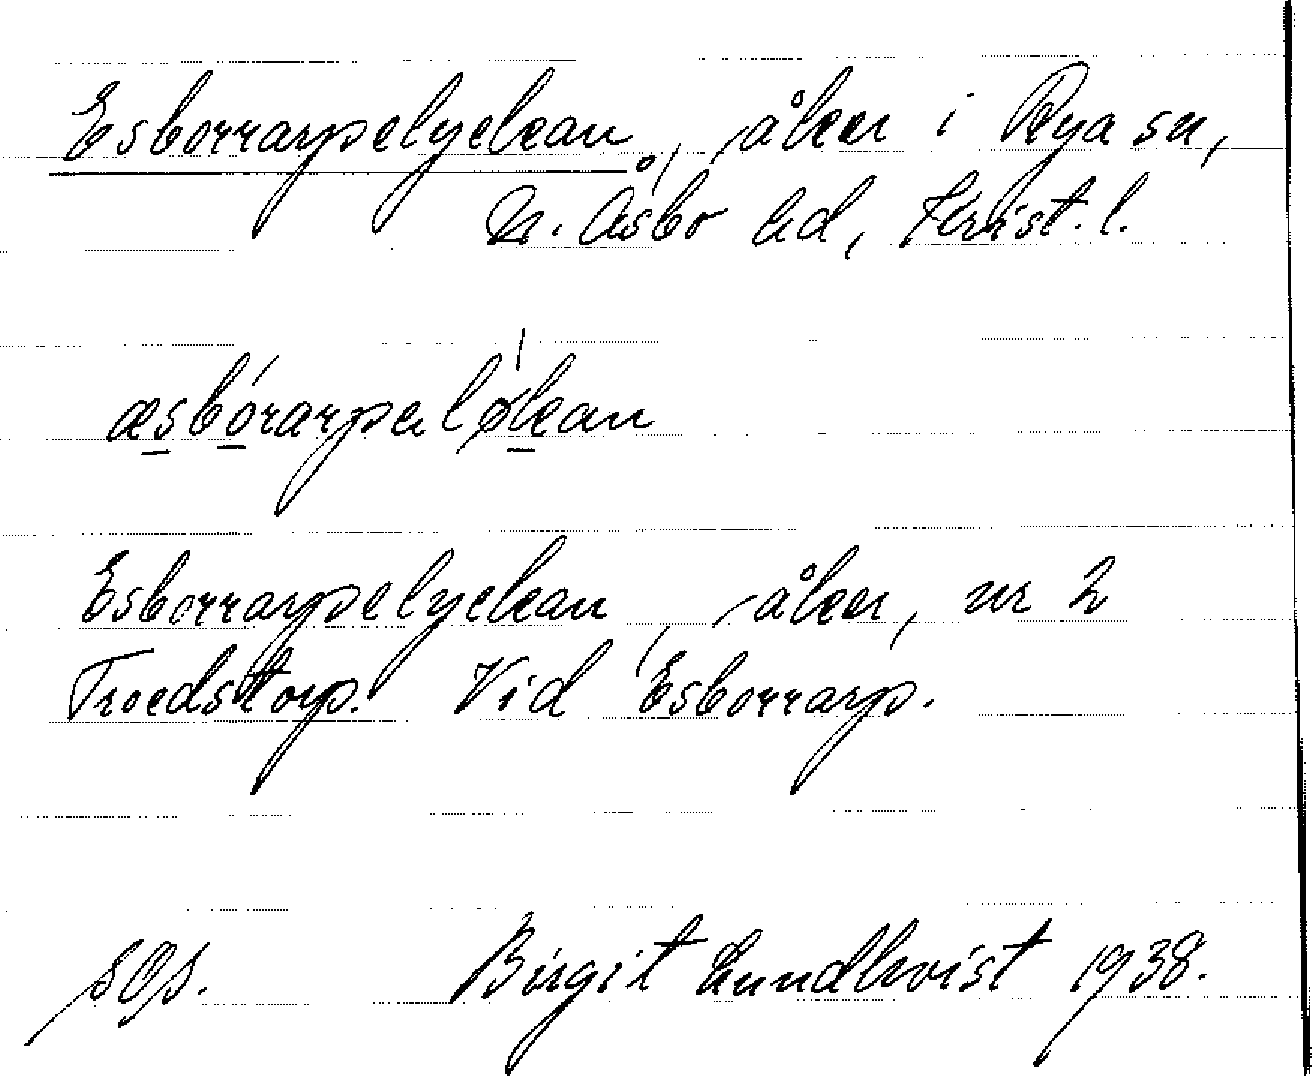 Esborrarpslyckan, åker i Rya sn,
N. Åsbo hd, Krist. l.
æsbórarpslø̍kan
Esborrarpslyckan, åker, nr 2
Troedstorp. Vid Esborrarp.
Birgit Lundkvist 1938.